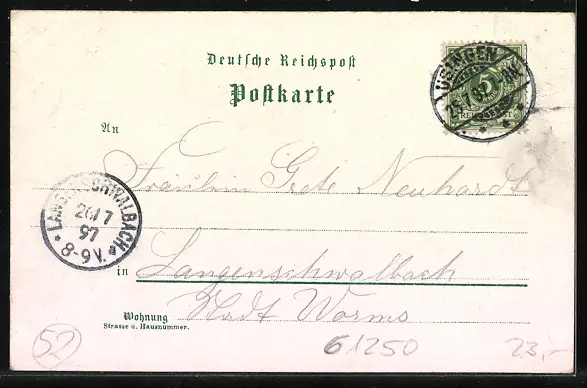 Deutsche Reichspost
Postkarte
USINGEN
25.7.97
5
An
Fräulein Grete Neuhardt
LANGENSCHWALBACH
26/7
97
8-9V.
in Langenschwalbach
Stadt Worms
Wohnung
Strasse u. Hausnummer.
61250
52
23,-